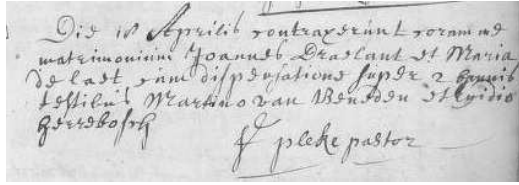 Die 18 Aprilis contraxerunt coram me
matrimonium Joannes Draelant et Maria
de laet cum dispensatione super 2 bannis
testibus Martino van Beneden et Egidio
Herrebosch
pleke pastor